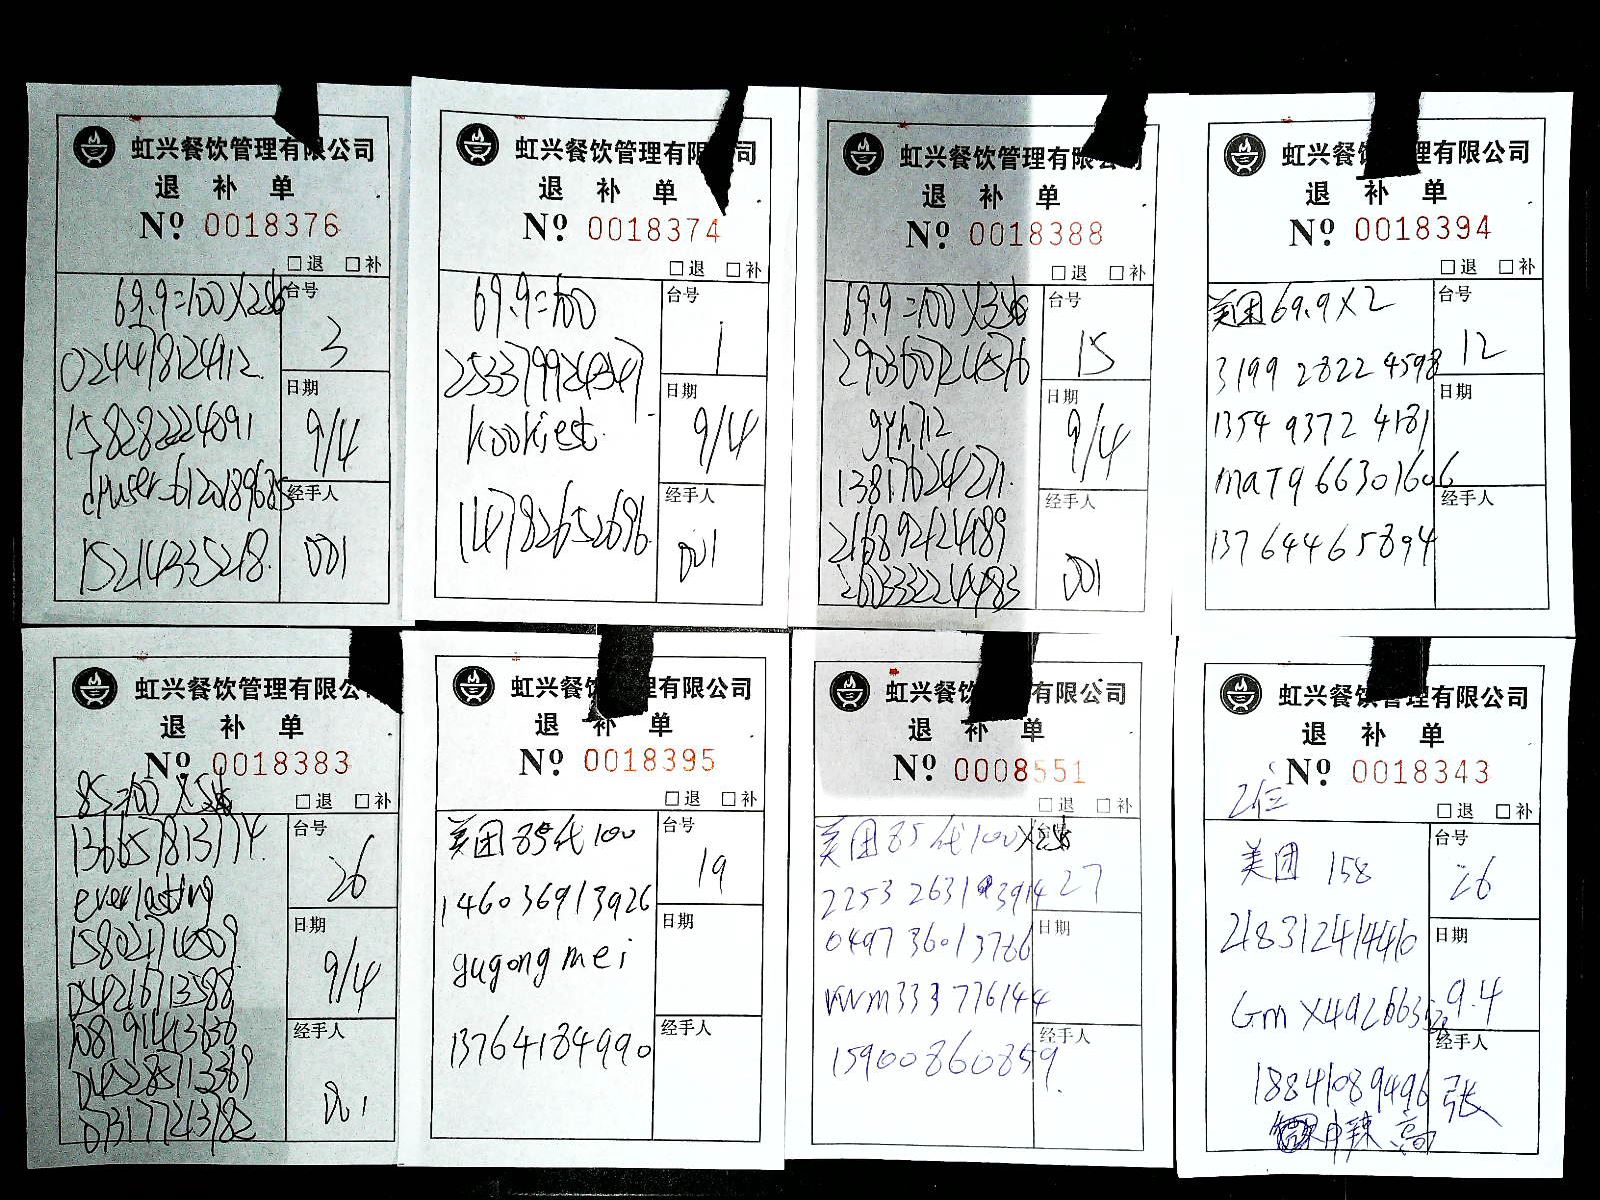 虹兴餐饮管理有限公司
退 补 单
Nº 0018376
□退 □补
69.9=100X2张
024478124912
158282224091
dHuser-6120189685
15214335218
台号
3
日期
9/4
经手人
001
虹兴餐饮管理有 司
退 补 单
Nº 0018374
□退 □补
69.9=100
253379924347
kookiest.
114782652696
台号
1
日期
9/4
经手人
001
虹兴餐饮管理有 司
退 补 单
Nº 0018388
□退 □补
69.9=100X3张
290360724576
gyh712
13817024271.
216892424189
260333224483
台号
15
日期
9/4
经手人
001
虹兴餐 管理有限公司
退 补 单
Nº 0018394
□退 □补
美团69.9X2
3199 2822 4598
1354 9372 4181
maT966301606
13764465894
台号
12
日期
经手人
虹兴餐饮管理有限公
退 补 单
Nº 0018383
85=100X5张
□退 □补
136657813174.
everlasting
15802171009
054216713588
081991443636
045285713389
073177243182
台号
26
日期
9/4
经手人
001
虹兴餐 管理有限公司
退 补 单
Nº 0018395
□退 □补
美团85代100
146036913926
gugongmei
13764184990
台号
19
日期
经手人
虹兴餐饮 有限公司
退 补 单
Nº 0008551
□退 □补
美团85代100X2张
2253 2631 3914
0497 3601 3766
wm333776144
15900860859.
台号
27
日期
经手人
虹兴餐饮管理有限公司
退 补 单
Nº 0018343
2位
□退 □补
美团 158
218312414410
GmX49266352
18841089496
中辣
台号
26
日期
9.4
经手人
张